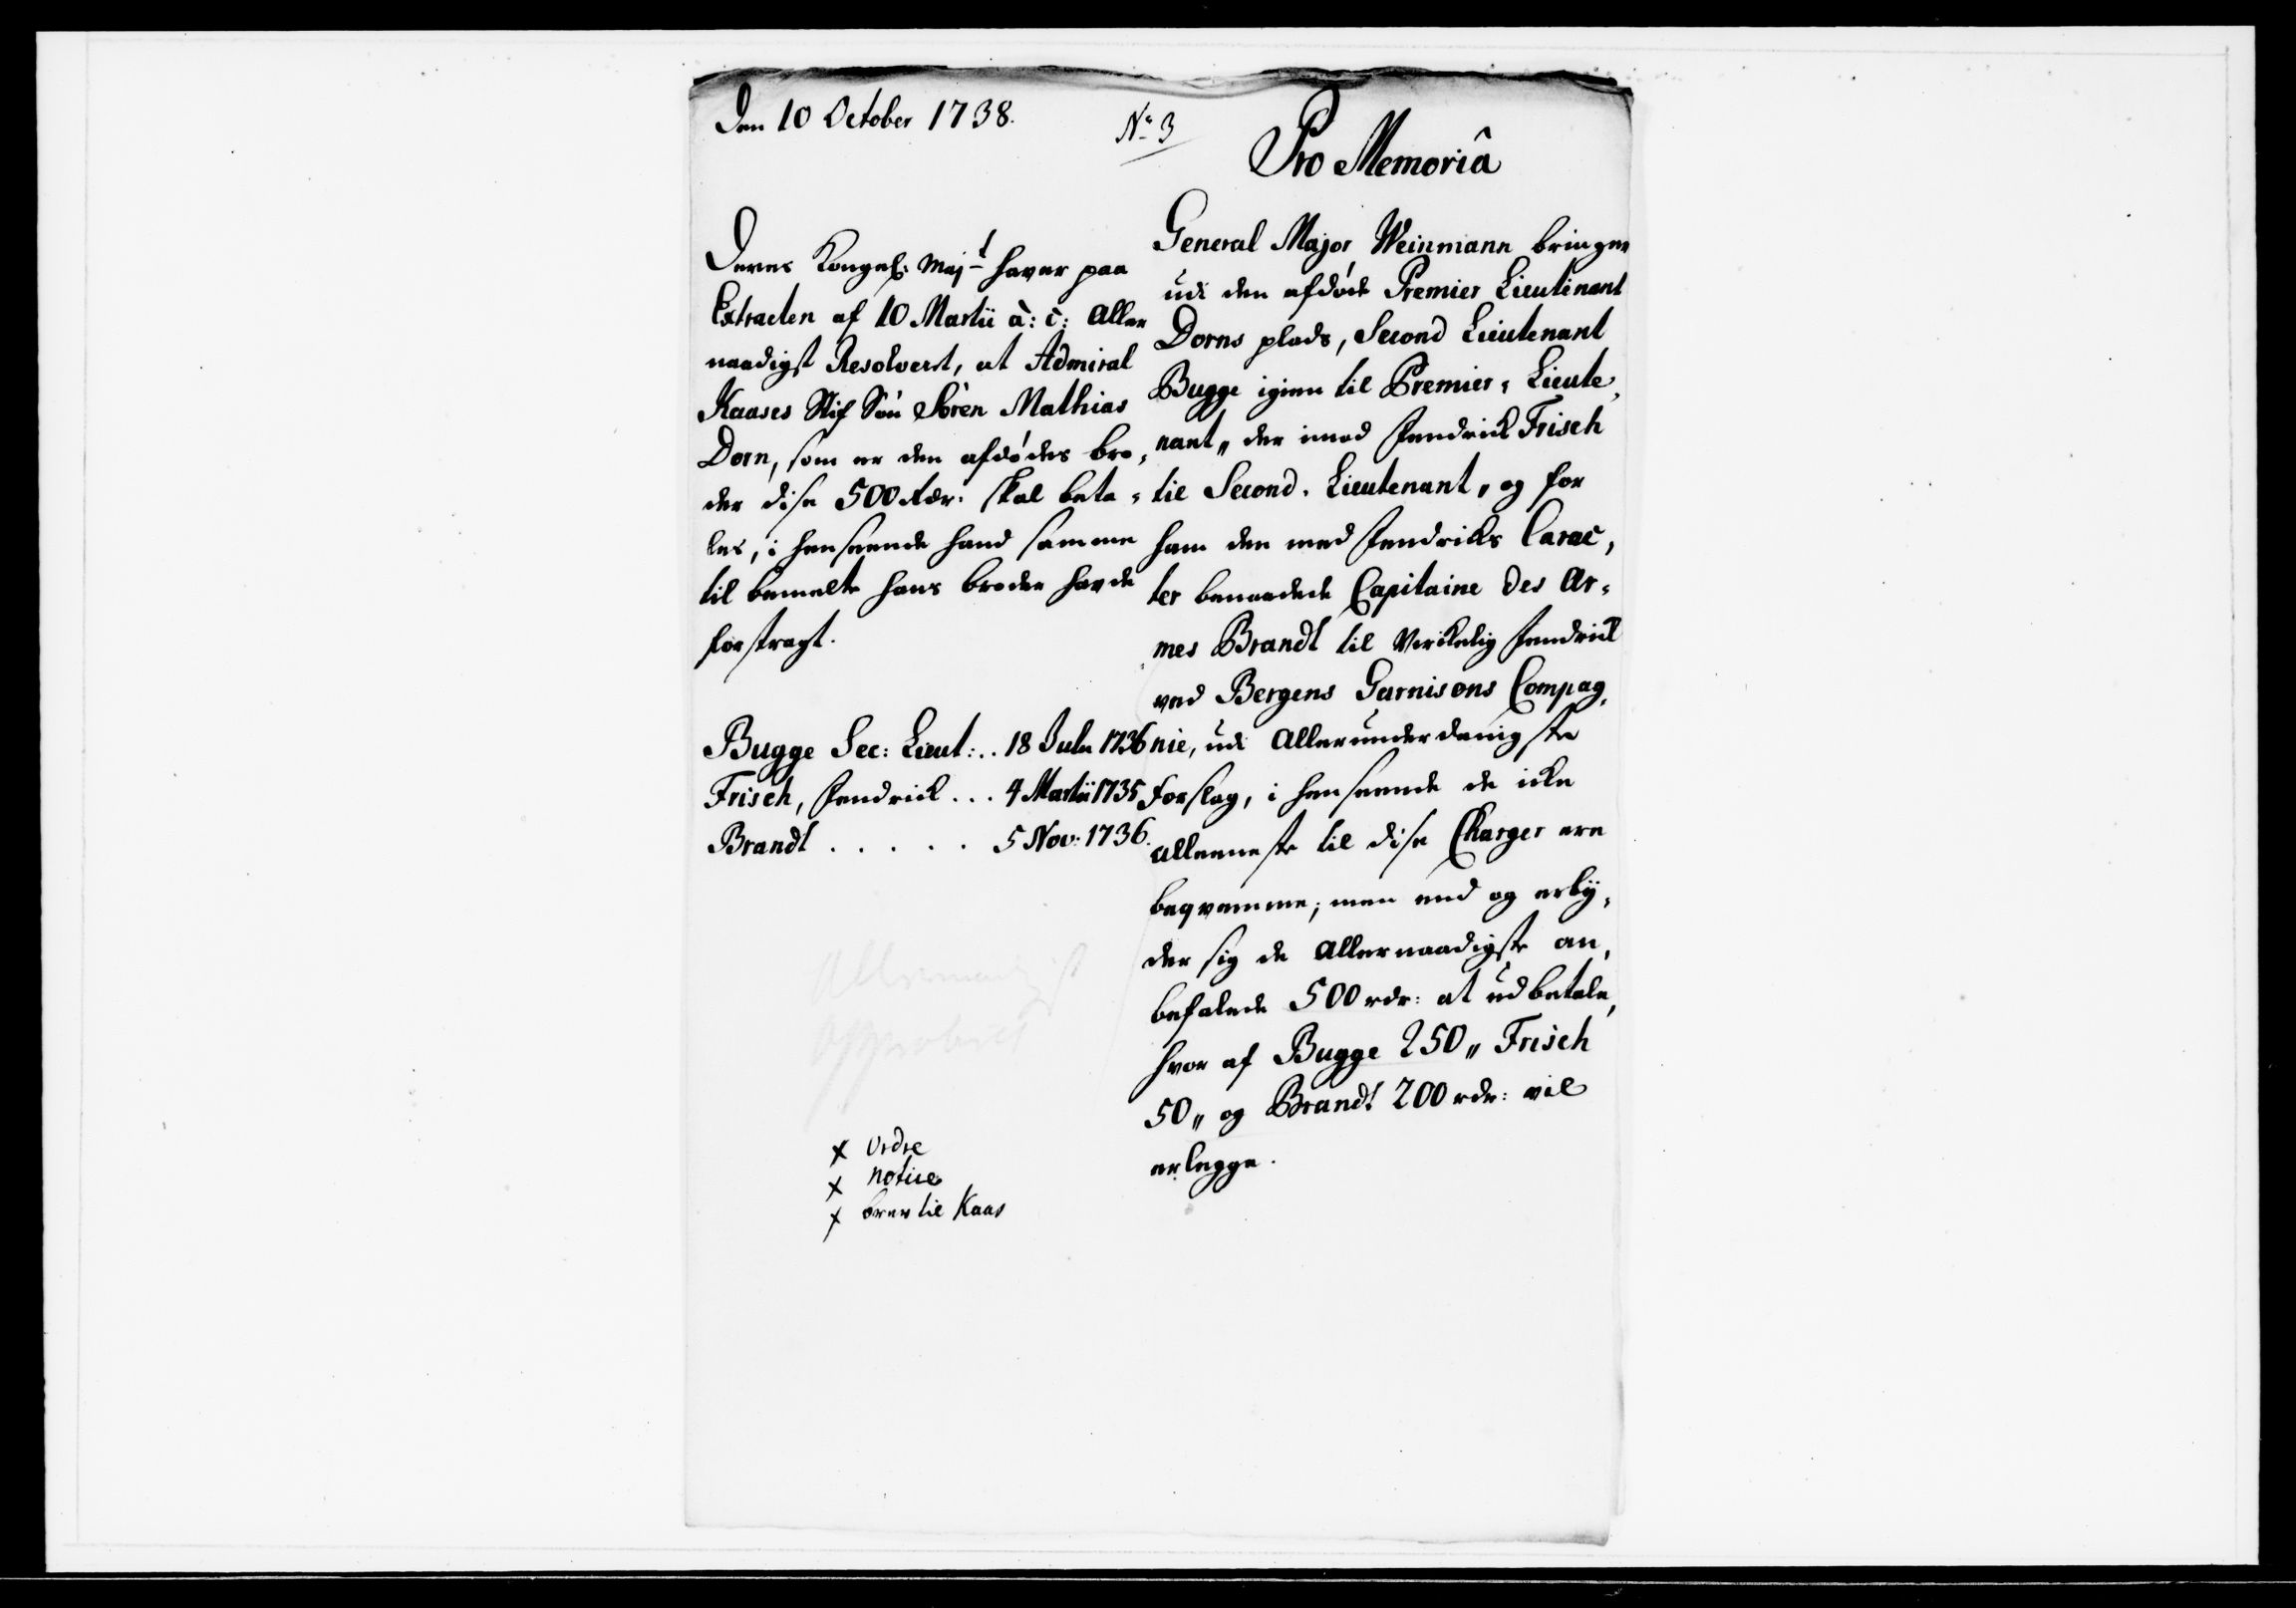 Den 10 October 1738.
No 3
Pro Memoriâ
Deres Kongel: Majt haver paa
Extracten af 10 Martii à: c: Aller
naadigst Resolveret, at Admiral
Kaases Stif Søn Sören Mathias
Dorn, som er den afdødes bro,
der dise 500 rdr. skal beta,
les, i henseende hand samme
til bemelte hans broder havde
forstragt.
Bugge Sec: Lieut: .. 18 Julii 1736
Frisch, Fendrick ... 4 Martii 1735
Brandt ..... 5 Nov: 1736.
Allernaadigst
Approberet
x Ordre
x notice
x brev til Kaas
General Major Weinmann bringer
udi den afdøde Premier Lieutenant
Dorns plads, Second Lieutenant
Bugge igien til Premier, Lieute,
nant,, der imod Fendrick Frisch
til Second, Lieutenant,, og for
ham den med Fendricks Carac,
ter benaadede Capitaine des Ar,
mes Brandt til Virkelig Fendrick
ved Bergens Garnisons Compag,
nie, udi Allerunderdanigste
forslag, i henseende de icke
alleeneste til dise Charger ere
beqvemme; men end og erby,
der sig de Allernaadigste an,
befalede 500 rdr: at udbetale,
hvor af Bugge 250,, Frisch
50,, og Brandt 200 rdr: vil
erlegge.